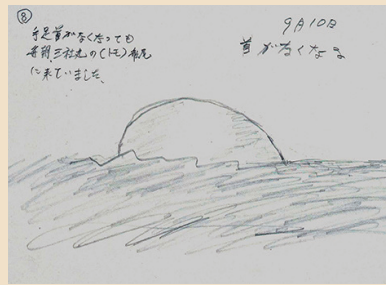 ⑧
手足首がなくなっても
三社丸の(トモ)船尾
に来ていました、
9月10日
首がなくなる